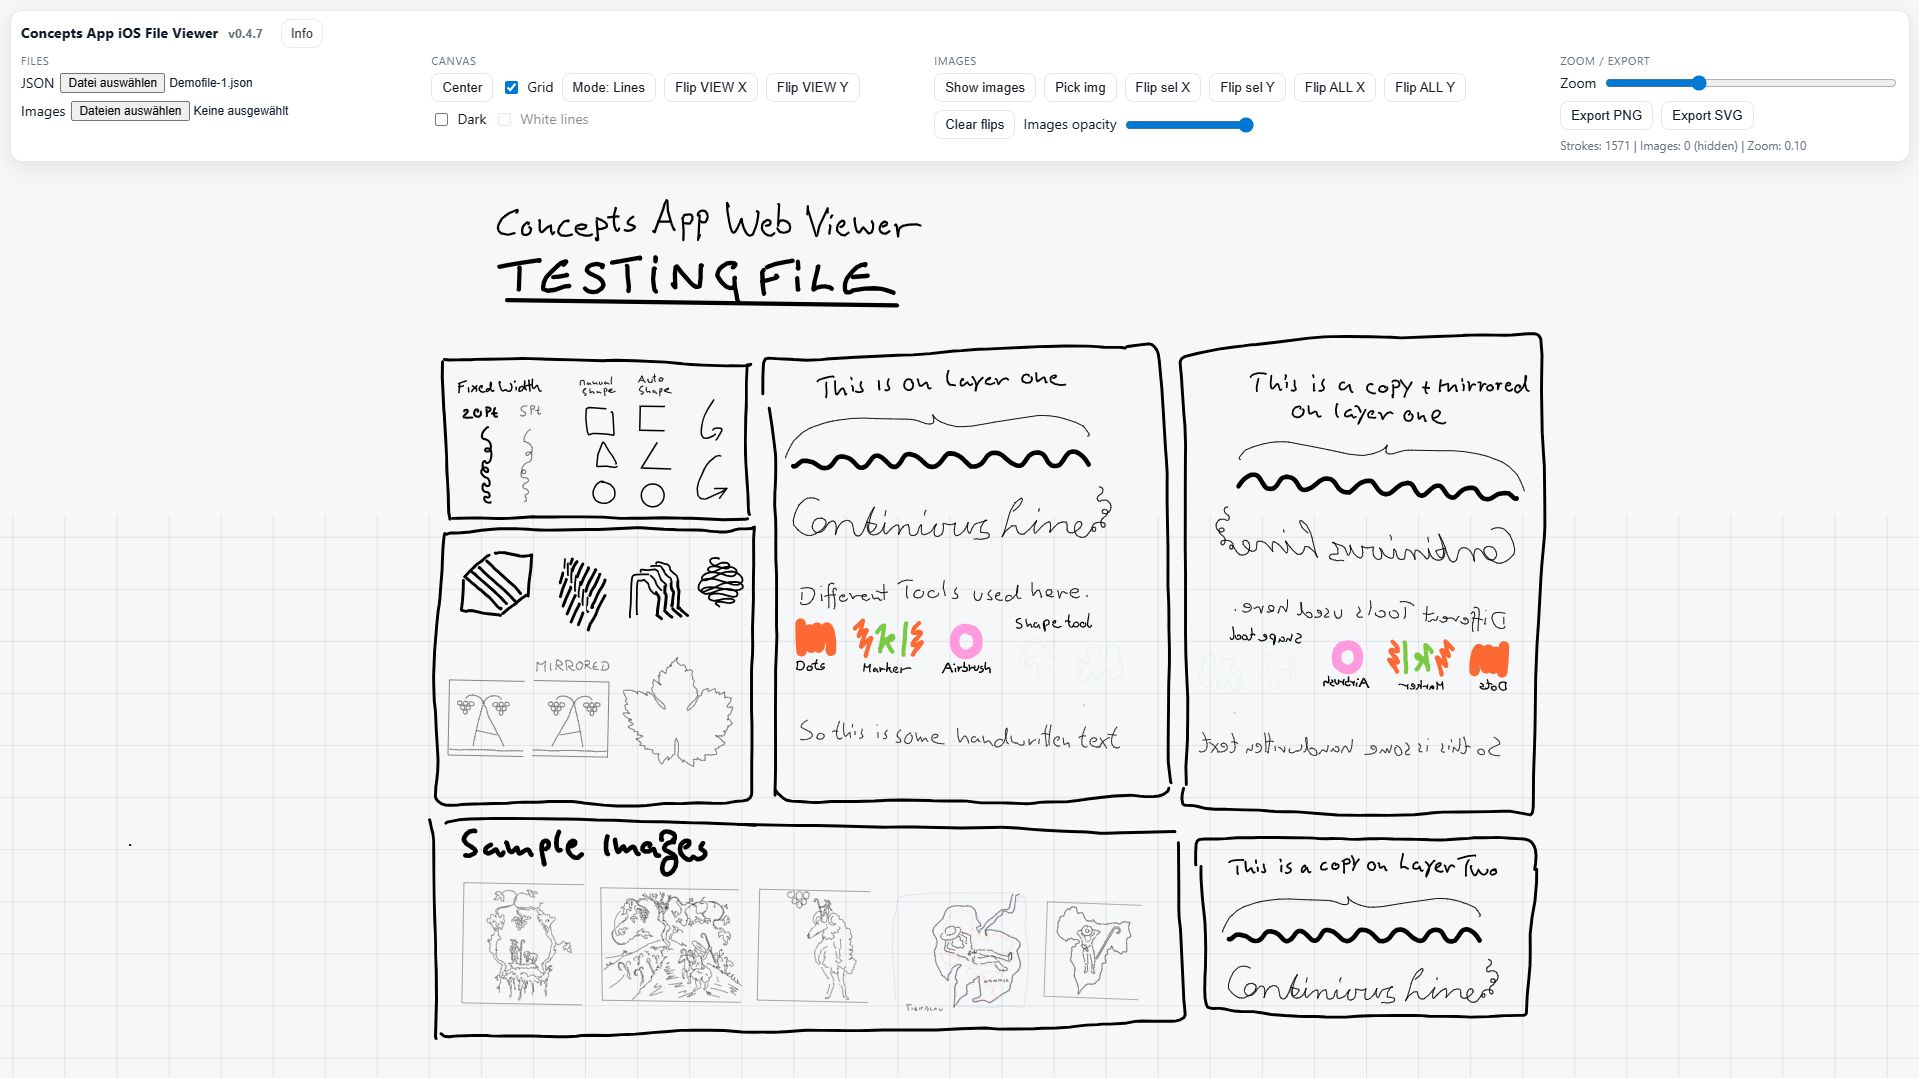 Concepts App iOS File Viewer v0.4.7 Info
FILES
JSON Datei auswählen Demofile-1.json
Images Dateien auswählen Keine ausgewählt
CANVAS
Center Grid Mode: Lines Flip VIEW X Flip VIEW Y
Dark White lines
IMAGES
Show images Pick img Flip sel X Flip sel Y Flip ALL X Flip ALL Y
Clear flips Images opacity
ZOOM / EXPORT
Zoom
Export PNG Export SVG
Strokes: 1571 | Images: 0 (hidden) | Zoom: 0.10
Concepts App Web Viewer
TESTING FiLE
Fixed Width
20Pt 5Pt
Manual Shape
Auto Shape
MIRRORED
This is on Layer one
Continiovrs Line
Different Tools used here.
Shape tool
Dots Marker Airbrush
So this is some handwritten text
This is a copy + mirrored
on layer one
Continiovrs Line
Different Tools used here.
Shape tool
Airbrush Marker Dots
So this is some handwritten text
Sample Images
ORGANIC
TIEFBLAU
This is a copy on Layer Two
Continiovrs Line